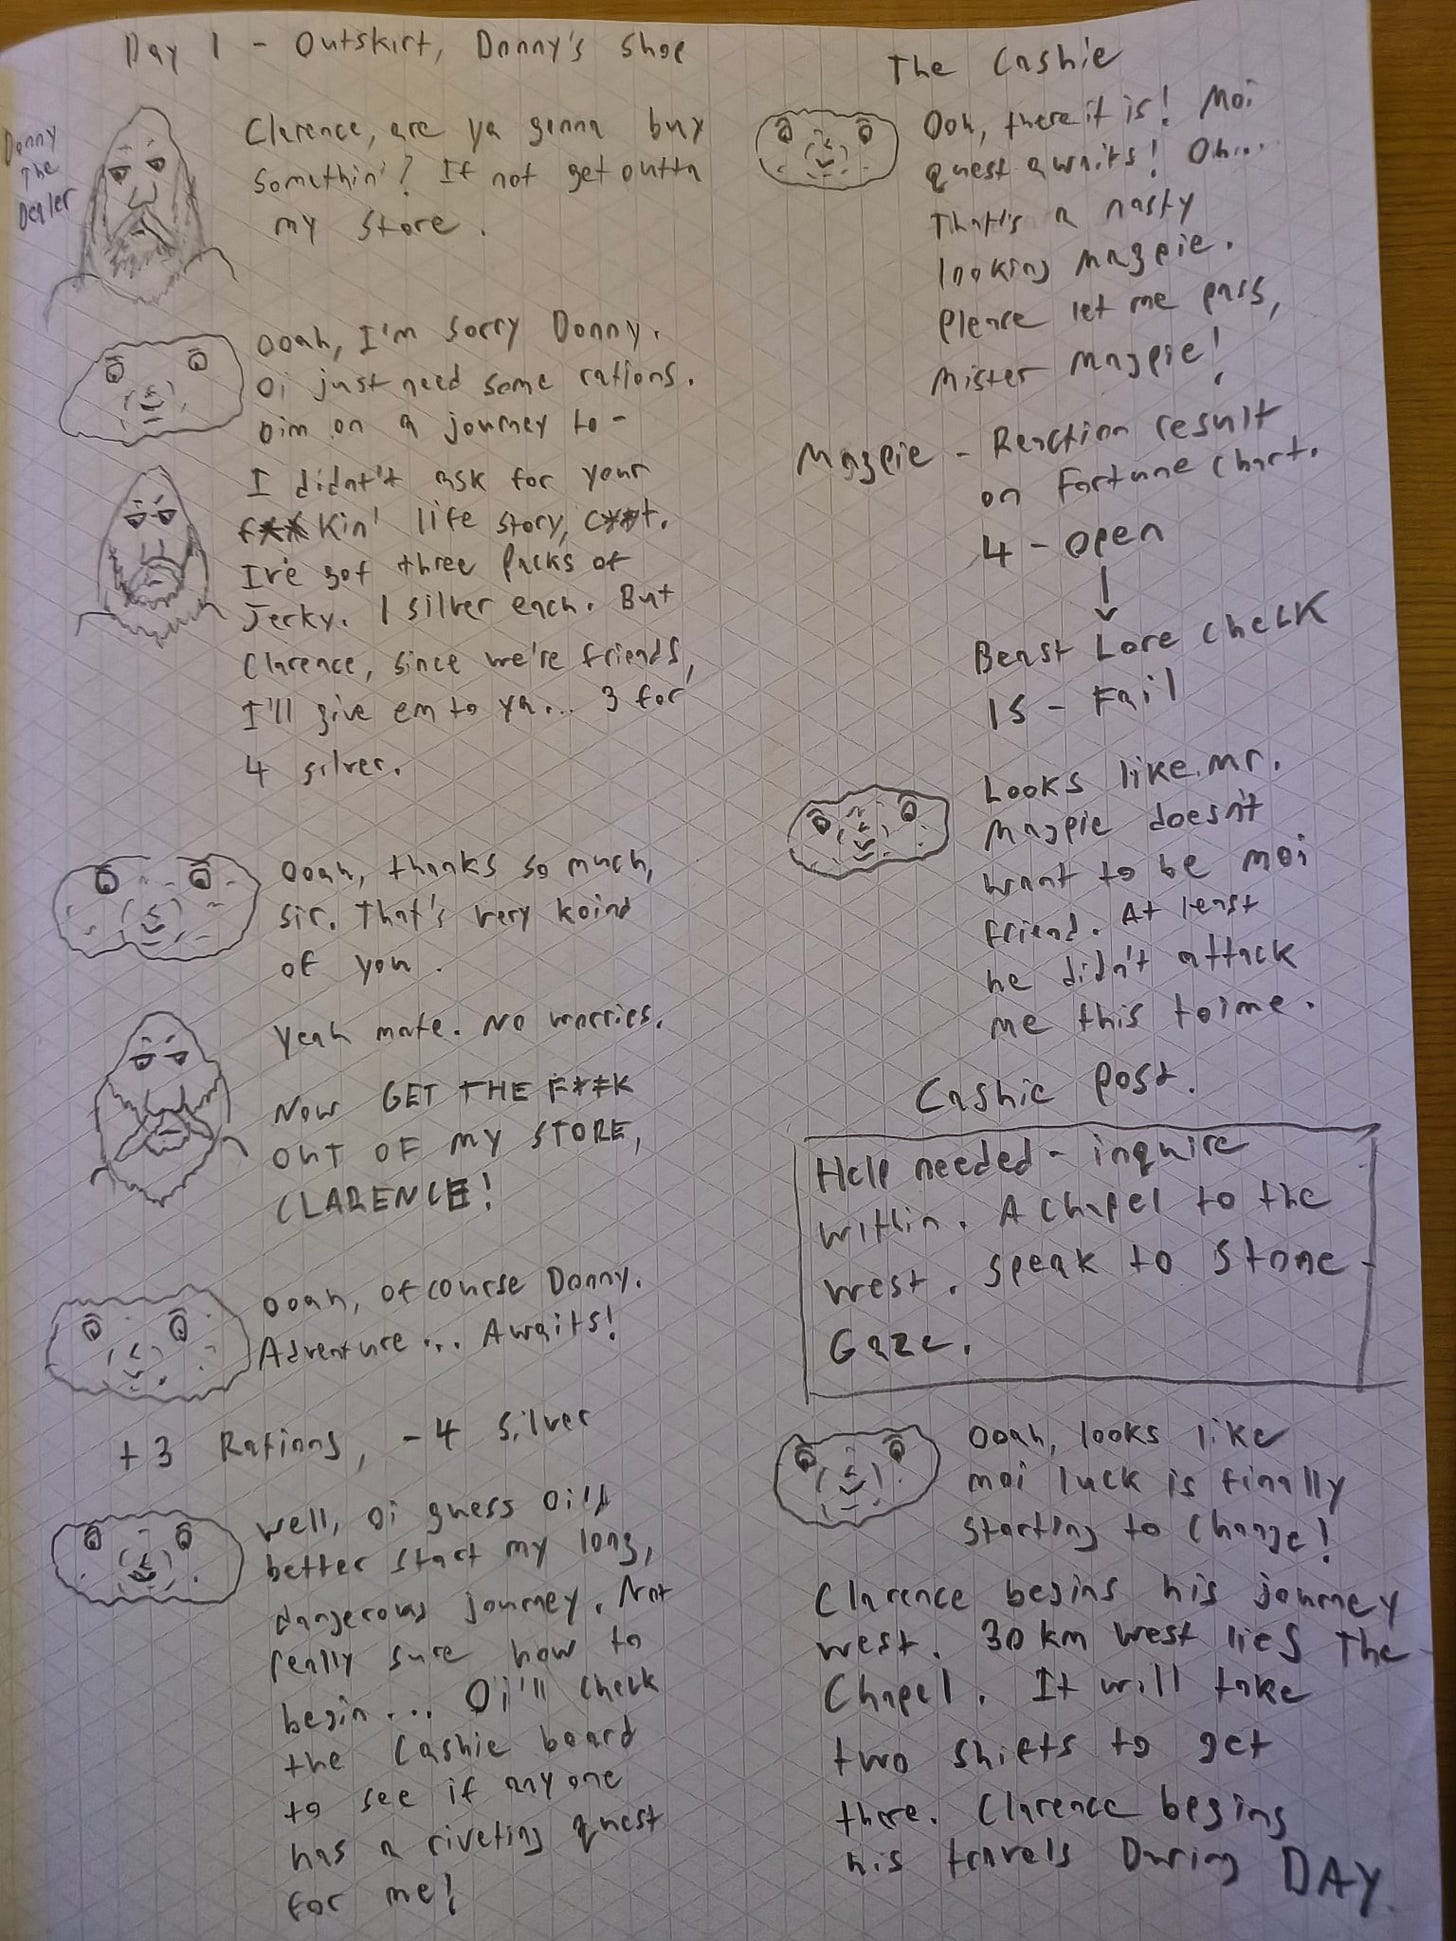 Day 1 - Outskirt, Donny's Shop
Donny
The
Dealer
Clarence, are ya gonna buy
somethin'? If not get outta
my store.
Ooah, I'm sorry Donny.
Oi just need some rations.
Oim on a journey to -
I didn't ask for your
f**kin' life story, c**t.
I've got three packs of
Jerky. 1 silver each. But
Clarence, since we're friends,
I'll give em to ya... 3 for
4 silver.
Ooah, thanks so much,
sir. That's very koind
of you.
Yeah mate. No worries.
Now GET THE F**K
OUT OF MY STORE,
CLARENCE!
Ooah, of course Donny.
Adventure... Awaits!
+3 Rations, -4 silver
Well, Oi guess Oi'd
better start my long,
dangerous journey. Not
really sure how to
begin... Oi'll check
the Cashie board
to see if anyone
has a riveting quest
for me!
The Cashie
Ooh, there it is! Moi
quest awaits! Oh...
That's a nasty
looking magpie.
Please let me pass,
Mister Magpie!
Magpie - Reaction result
on Fortune chart.
4 - Open
Beast Lore check
15 - Fail
Looks like Mr.
Magpie doesn't
want to be moi
friend. At least
he didn't attack
me this toime.
Cashie post.
Help needed - inquire
within. A chapel to the
west. Speak to Stone-
Gaze.
Ooah, looks like
moi luck is finally
starting to change!
Clarence begins his journey
west. 30 km west lies The
Chapel. It will take
two shifts to get
there. Clarence begins
his travels During DAY.